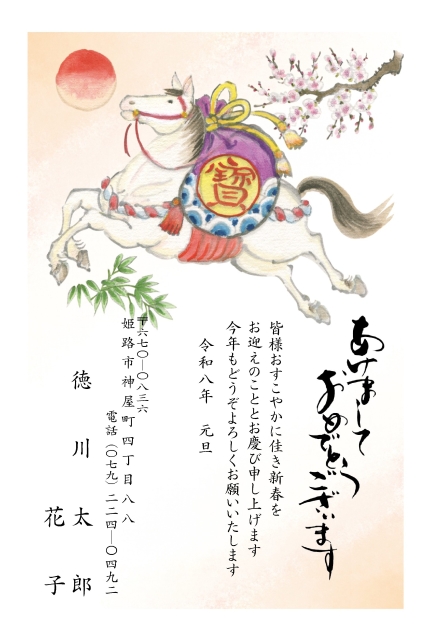 寶
あけまして
おめでとう
ございます
皆様おすこやかに佳き新春を
お迎えのこととお慶び申し上げます
今年もどうぞよろしくお願いいたします
令和八年　元旦
〒六七〇―〇八三六
姫路市神屋町四丁目八八
電話（〇七九）二二四―〇四九二
徳川太郎
花子